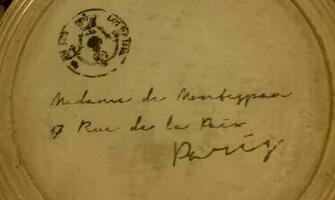 Madame de Montespan
17 Rue de la Paix
Paris